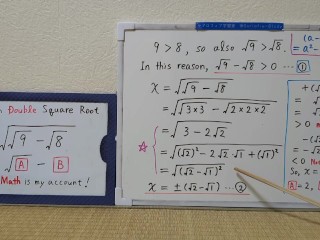 Double Square Root
√√9 - √√8
√A - √B
Math is my account!
9 > 8, so also √9 > √8.
In this reason, √9 - √8 > 0 … ①
x = √(√9 - √8)
= √(√(3×3) - √(2×2×2))
= √(3 - 2√2)
☆ = √((√2)² - 2√2·√1 + (√1)²)
= √((√2 - √1)²)
x = ± (√2 - √1) … ②
(a-
= a² -
+(√
= √
> 0
-(√
= -√2
< 0
So, x =
A = 2,